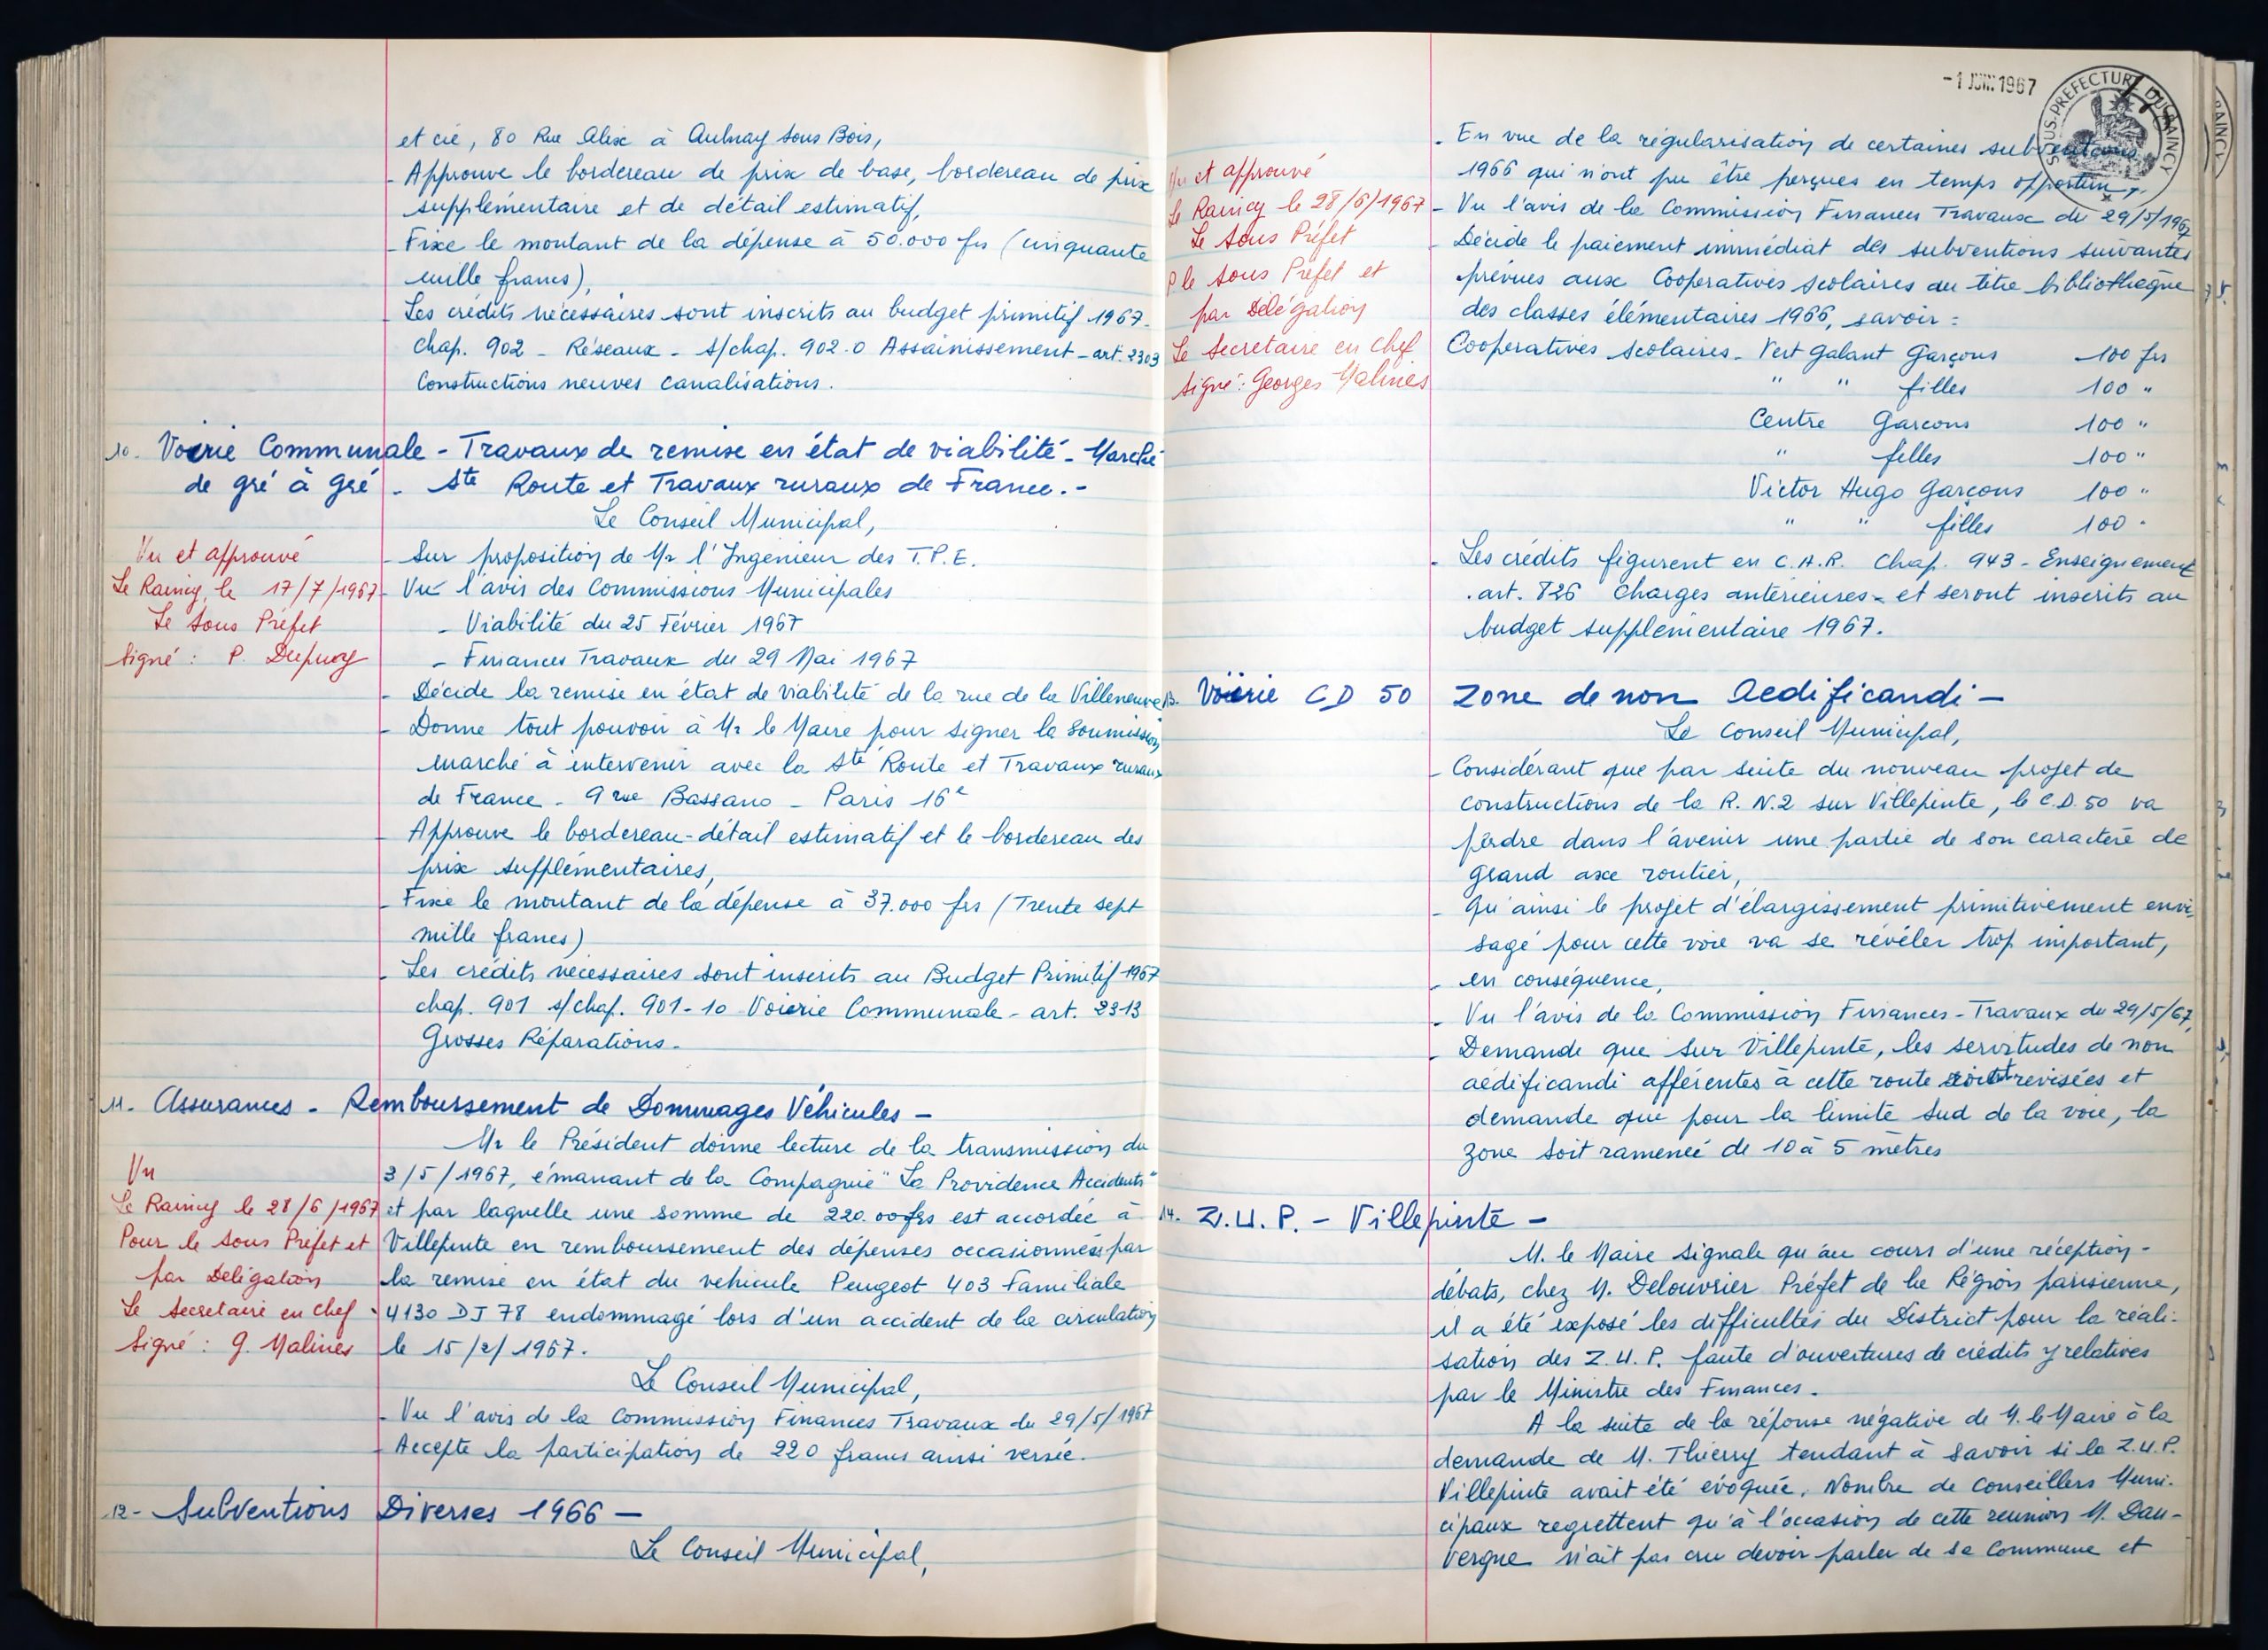 et cie, 80 Rue Alix à Aulnay sous Bois,
- Approuve le bordereau de prix de base, bordereau de prix
supplémentaire et de détail estimatif,
- Fixe le montant de la dépense à 50.000 frs (cinquante
mille francs),
Les crédits nécessaires sont inscrits au budget primitif 1967.
chap. 902 - Réseaux - s/chap. 902.0 Assainissement - art. 2303
Constructions neuves canalisations.
10. Voirie Communale - Travaux de remise en état de viabilité - Marché
de gré à gré - Sté Route et Travaux ruraux de France.-
Le Conseil Municipal,
Vu et approuvé
Le Raincy, le 17/7/1967
Le Sous Préfet
Signé : P. Dupuoy
- Sur proposition de Mr l'Ingénieur des T.P.E.
- Vu l'avis des Commissions Municipales
- Viabilité du 25 Février 1967
- Finances Travaux du 29 Mai 1967
- Décide la remise en état de viabilité de la rue de la Villeneuve
- Donne tout pouvoir à Mr le Maire pour signer la soumission
marché à intervenir avec la Sté Route et Travaux ruraux
de France - 9 rue Bassano - Paris 16e
- Approuve le bordereau-détail estimatif et le bordereau des
prix supplémentaires,
- Fixe le montant de la dépense à 37.000 frs (Trente sept
mille francs)
- Les crédits nécessaires sont inscrits au Budget Primitif 1967
chap. 901 s/chap. 901-10 Voirie Communale - art. 2313
Grosses Réparations.
11. Assurances - Remboursement de Dommages Véhicules -
Vu
Le Raincy le 28/6/1967
Pour le Sous Préfet et
par Délégation
Le Secrétaire en Chef
Signé : G. Malines
Mr le Président donne lecture de la transmission du
3/5/1967, émanant de la Compagnie "La Providence Accidents"
et par laquelle une somme de 220.00 frs est accordée à
Villepinte en remboursement des dépenses occasionnées par
la remise en état du véhicule Peugeot 403 Familiale
4130 DJ 78 endommagé lors d'un accident de la circulation
le 15/2/1967.
Le Conseil Municipal,
- Vu l'avis de la Commission Finances Travaux du 29/5/1967
- Accepte la participation de 220 francs ainsi versée.
12- Subventions Diverses 1966 -
Le Conseil Municipal,
-1 JUIN 1967
SOUS-PREFECTURE DU RAINCY
Vu et approuvé
Le Raincy le 28/6/1967
Le Sous Préfet
P le Sous Préfet et
par Délégation
Le Secrétaire en Chef
Signé : Georges Malines
- En vue de la régularisation de certaines subventions
1966 qui n'ont pu être perçues en temps opportun,
- Vu l'avis de la Commission Finances Travaux du 29/5/1967
- Décide le paiement immédiat des subventions suivantes
prévues aux Coopératives scolaires au titre bibliothèque
des classes élémentaires 1966, savoir :
Coopératives Scolaires - Vert Galant Garçons 100 frs
" " filles 100 "
Centre Garçons 100 "
" filles 100 "
Victor Hugo Garçons 100 "
" " filles 100 "
- Les crédits figurent en C.A.R. Chap. 943 - Enseignement
.art. 826 Charges antérieures - et seront inscrits au
budget supplémentaire 1967.
13. Voirie CD 50 Zone de non Aedificandi -
Le Conseil Municipal,
- Considérant que par suite du nouveau projet de
constructions de la R.N.2 sur Villepinte, le C.D. 50 va
perdre dans l'avenir une partie de son caractère de
grand axe routier,
- Qu'ainsi le projet d'élargissement primitivement envi-
sagé pour cette voie va se révéler trop important,
- en conséquence,
- Vu l'avis de la Commission Finances - Travaux du 29/5/67,
- Demande que sur Villepinte, les servitudes de non
aedificandi afférentes à cette route soient revisées et
demande que pour la limite Sud de la voie, la
zone soit ramenée de 10 à 5 mètres
14. Z.U.P. - Villepinte -
M. le Maire signale qu'au cours d'une réception-
débats, chez M. Delouvrier Préfet de la Région parisienne,
il a été exposé les difficultés du District pour la réali-
sation des Z.U.P. faute d'ouvertures de crédits y relatives
par le Ministre des Finances.
A la suite de la réponse négative de M. le Maire à la
demande de M. Thierry tendant à savoir si la Z.U.P.
Villepinte avait été évoquée, Nombre de Conseillers Muni-
cipaux regrettent qu'à l'occasion de cette réunion M. Dau-
vergne n'ait pas cru devoir parler de sa Commune et